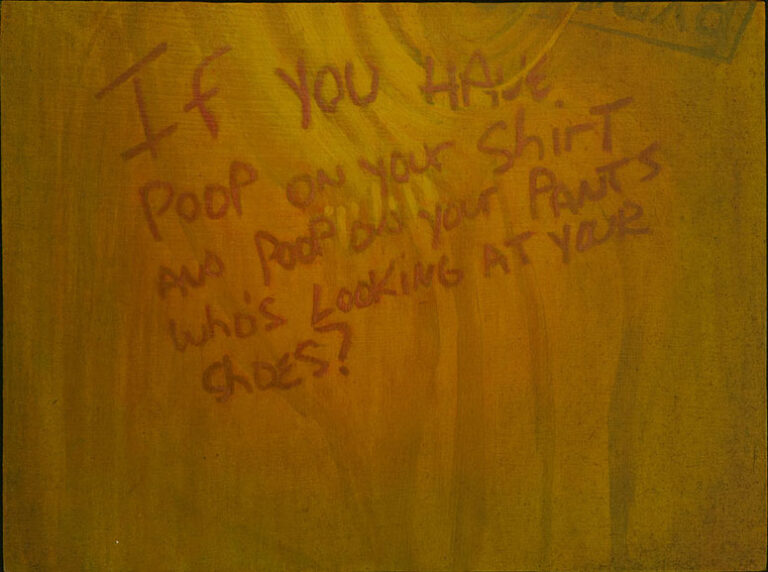 If YOU HAVE
POOP ON YOUR ShirT
AND POOP ON YOUR PANTS
Who's LOOKING AT YOUR
ShOES?